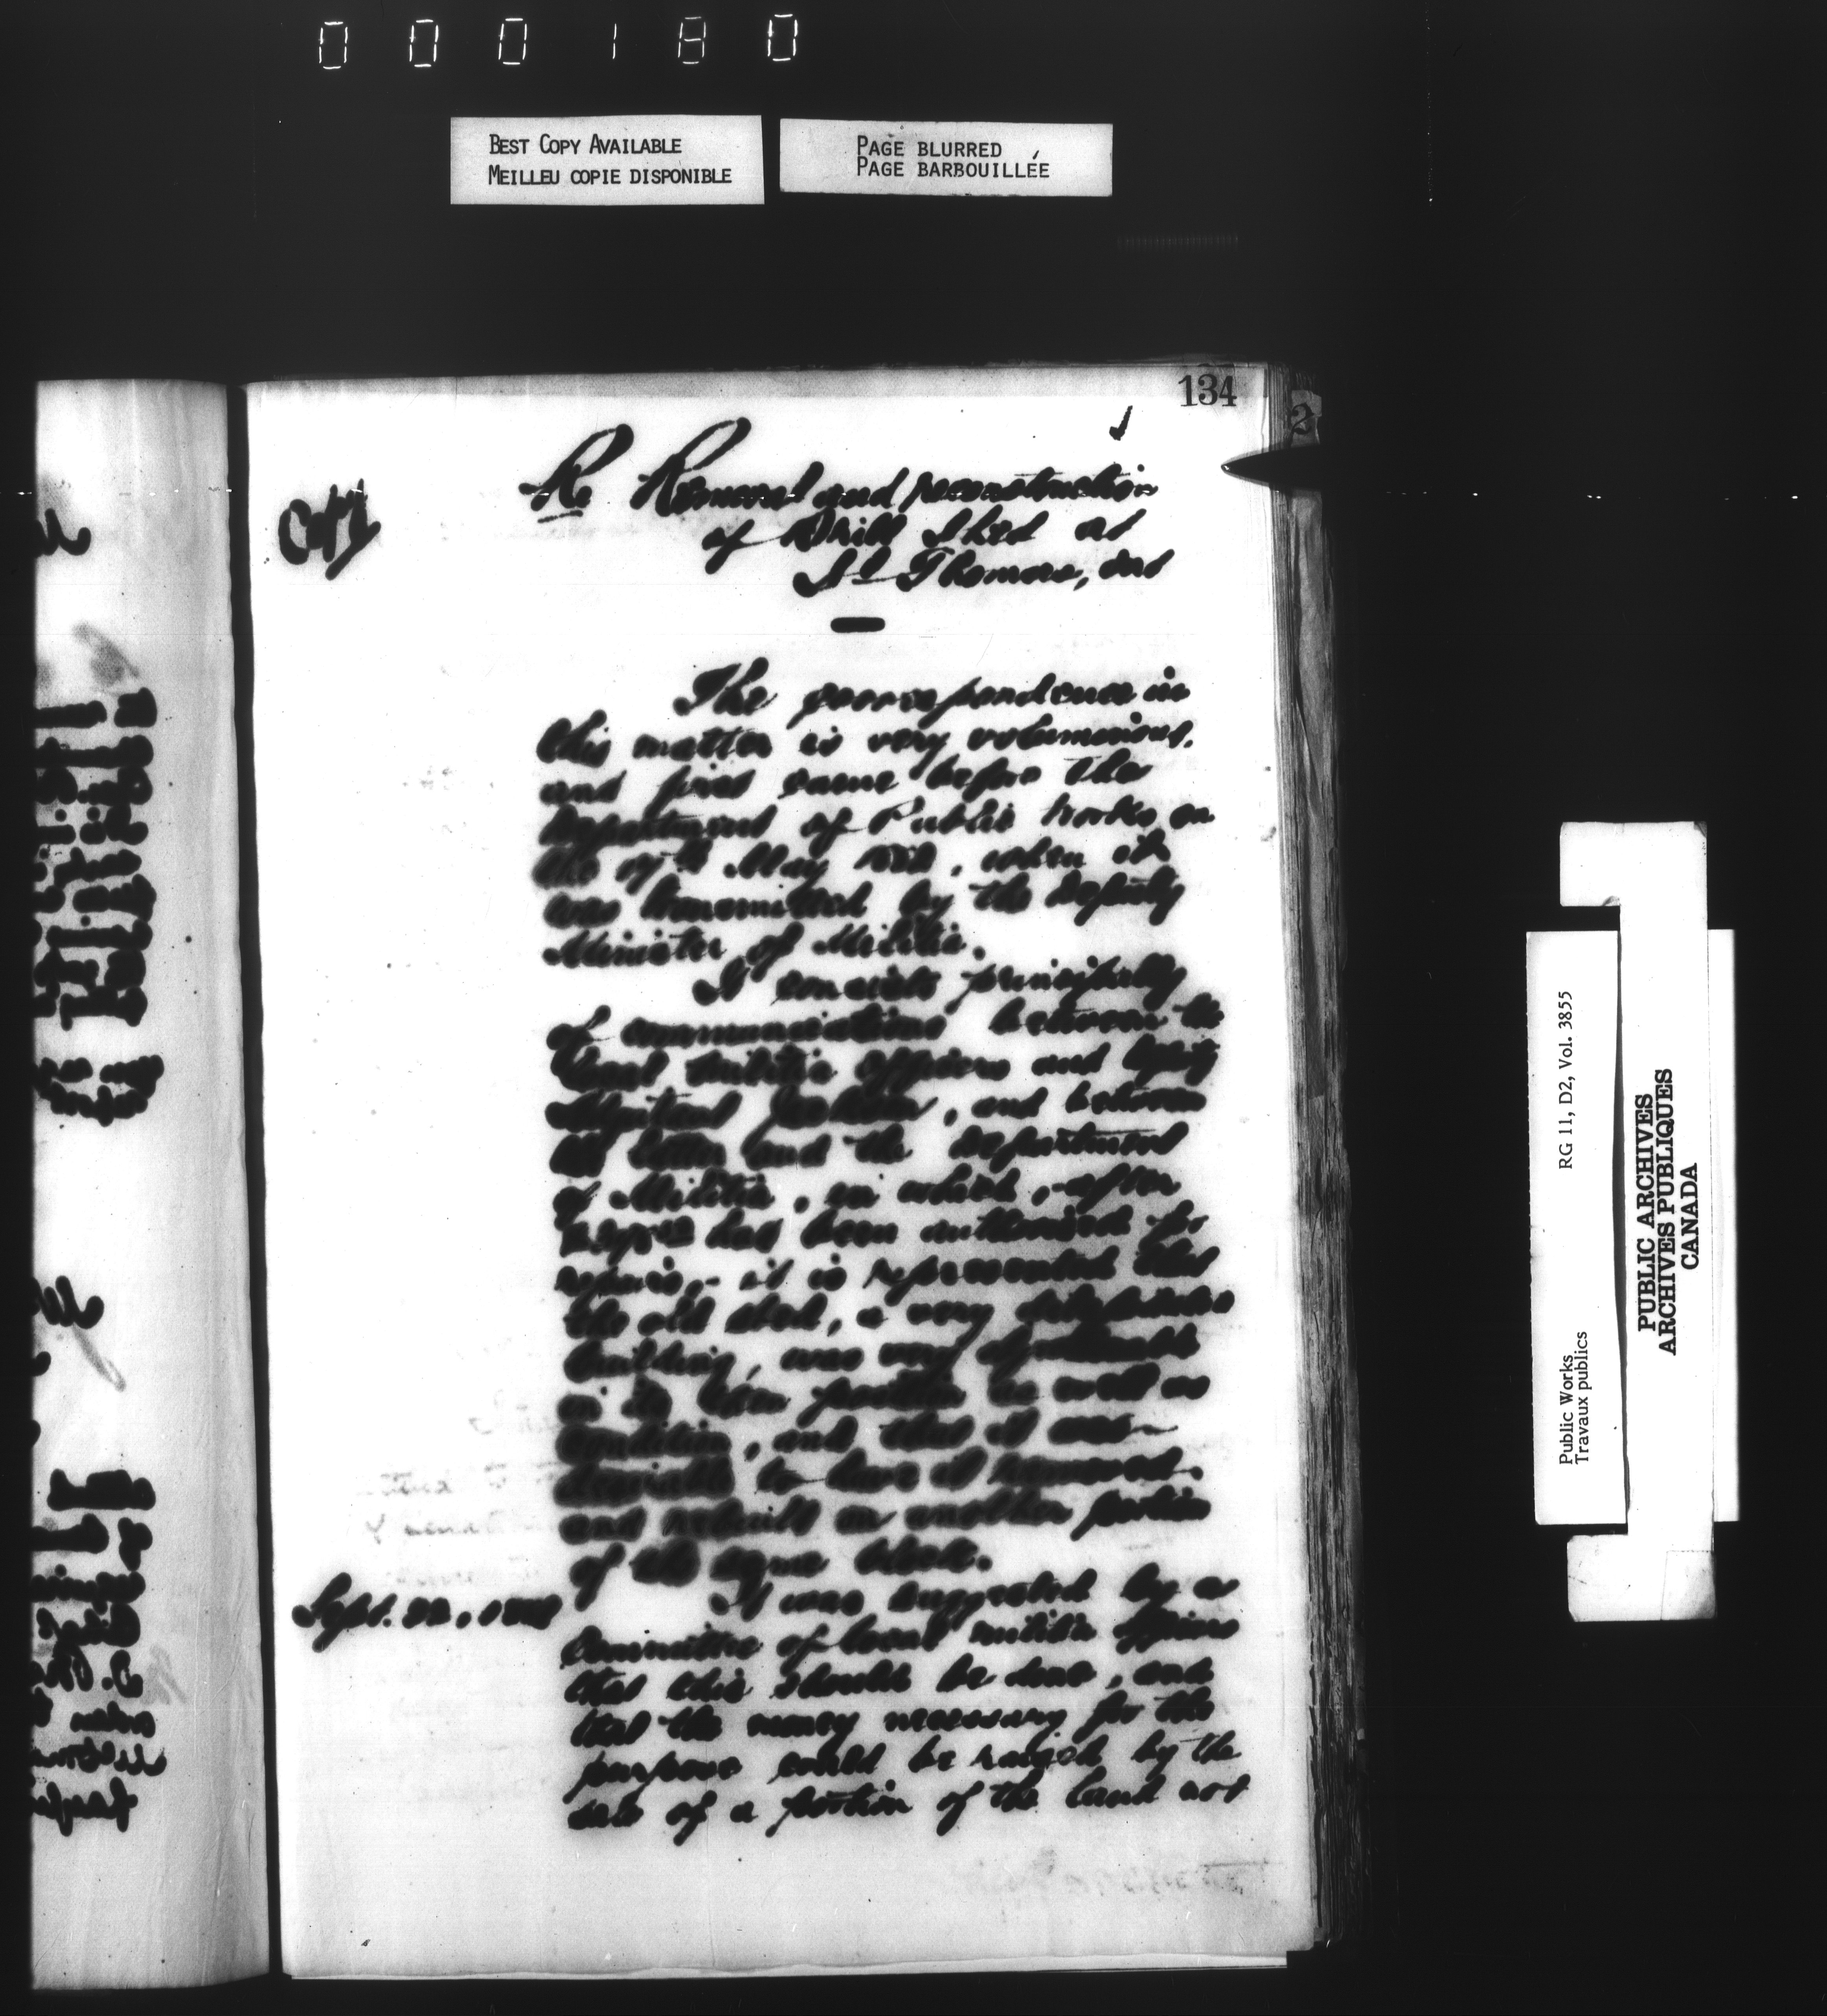 000180
BEST COPY AVAILABLE
MEILLEU COPIE DISPONIBLE
PAGE BLURRED
PAGE BARBOUILLÉE
134
2
Copy
Re Removal and reconstruction
of Drill Shed at
St Thomas, Ont
The correspondence in
this matter is very voluminous,
and first came before the
Department of Public Works on
the May , when it
was transmitted by the Deputy
Minister of Militia.
It consists principally
of communications between the
local Militia Officers and Deputy
Adjutant , and between
the latter and the Department
of Militia, in which, after
has been authorized for
repairs, - it is represented that
the old shed, a very dilapidated
building, was very
in its then position as well as
condition, and that it was
desirable to have it removed
and rebuilt on another portion
of the block.
Sept. 22,
It was suggested by a
Committee of local militia officers
that this should be done, and
that the money necessary for the
purpose could be raised by the
sale of a portion of the land not
Public Works
Travaux publics
RG 11, D2, Vol. 3855
PUBLIC ARCHIVES
ARCHIVES PUBLIQUES
CANADA